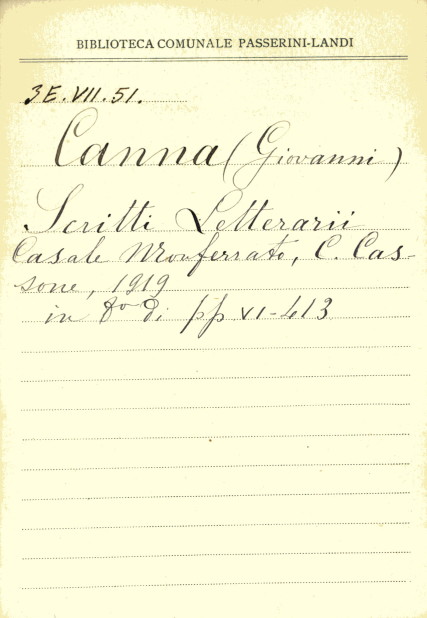 BIBLIOTECA COMUNALE PASSERINI-LANDI
3E.VII.51.
Canna (Giovanni)
Scritti Letterarii
Casale Monferrato, C. Cas-
sone, 1919
in 8º di pp VI-413